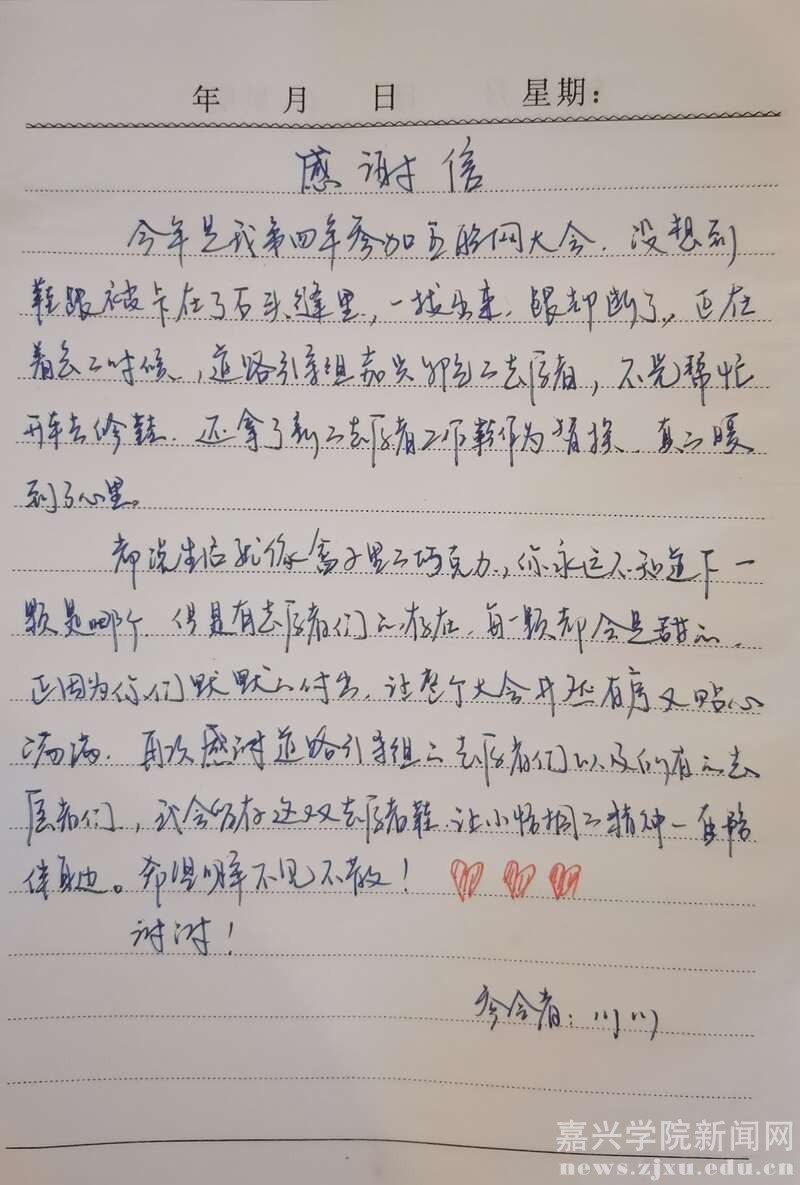 年 月 日 星期：
感谢信
今年是我第四年参加互联网大会，没想到
鞋跟被卡在了石头缝里，一拔出来，跟却断了。正在
着急的时候，道路引导组嘉兴的志愿者，不光帮忙
开车去修鞋，还拿了新的志愿者工作鞋作为替换，真的暖
到了心里。
都说生活就像盒子里的巧克力，你永远不知道下一
颗是哪个，但是有志愿者们的存在，每一颗都会是甜的，
正因为你们默默的付出，让整个大会井然有序又贴心
满满，再次感谢道路引导组的志愿者们以及所有的志
愿者们，我会留存这双志愿者鞋，让小梧桐的精神一直陪
伴身边。希望明年不见不散！
谢谢！
参会者：川川
嘉兴学院新闻网
news.zjxu.edu.cn